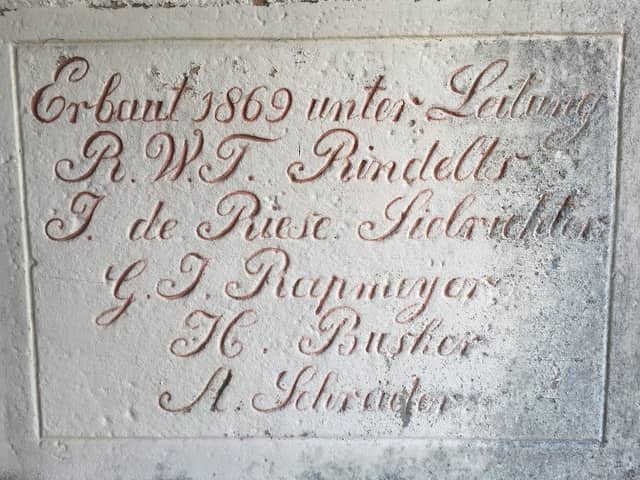 Erbaut 1869 unter Leitung
R. W. T. Rindelts
J. de Riese. Sielrichter
G. J. Rapmeyer
H. Busker.
A. Schrader